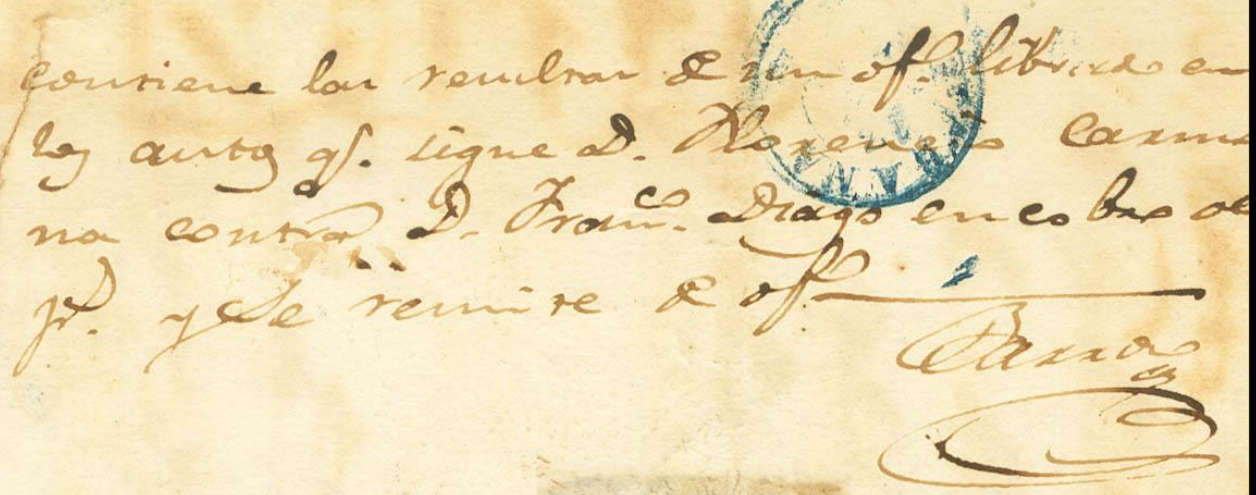 contiene las resultas de un of.º librado en
los autos q.e sigue D. Florencio Carmo
na contra D. Fran.co Drago en cobro de
p.s y se remite de of.º
Parra